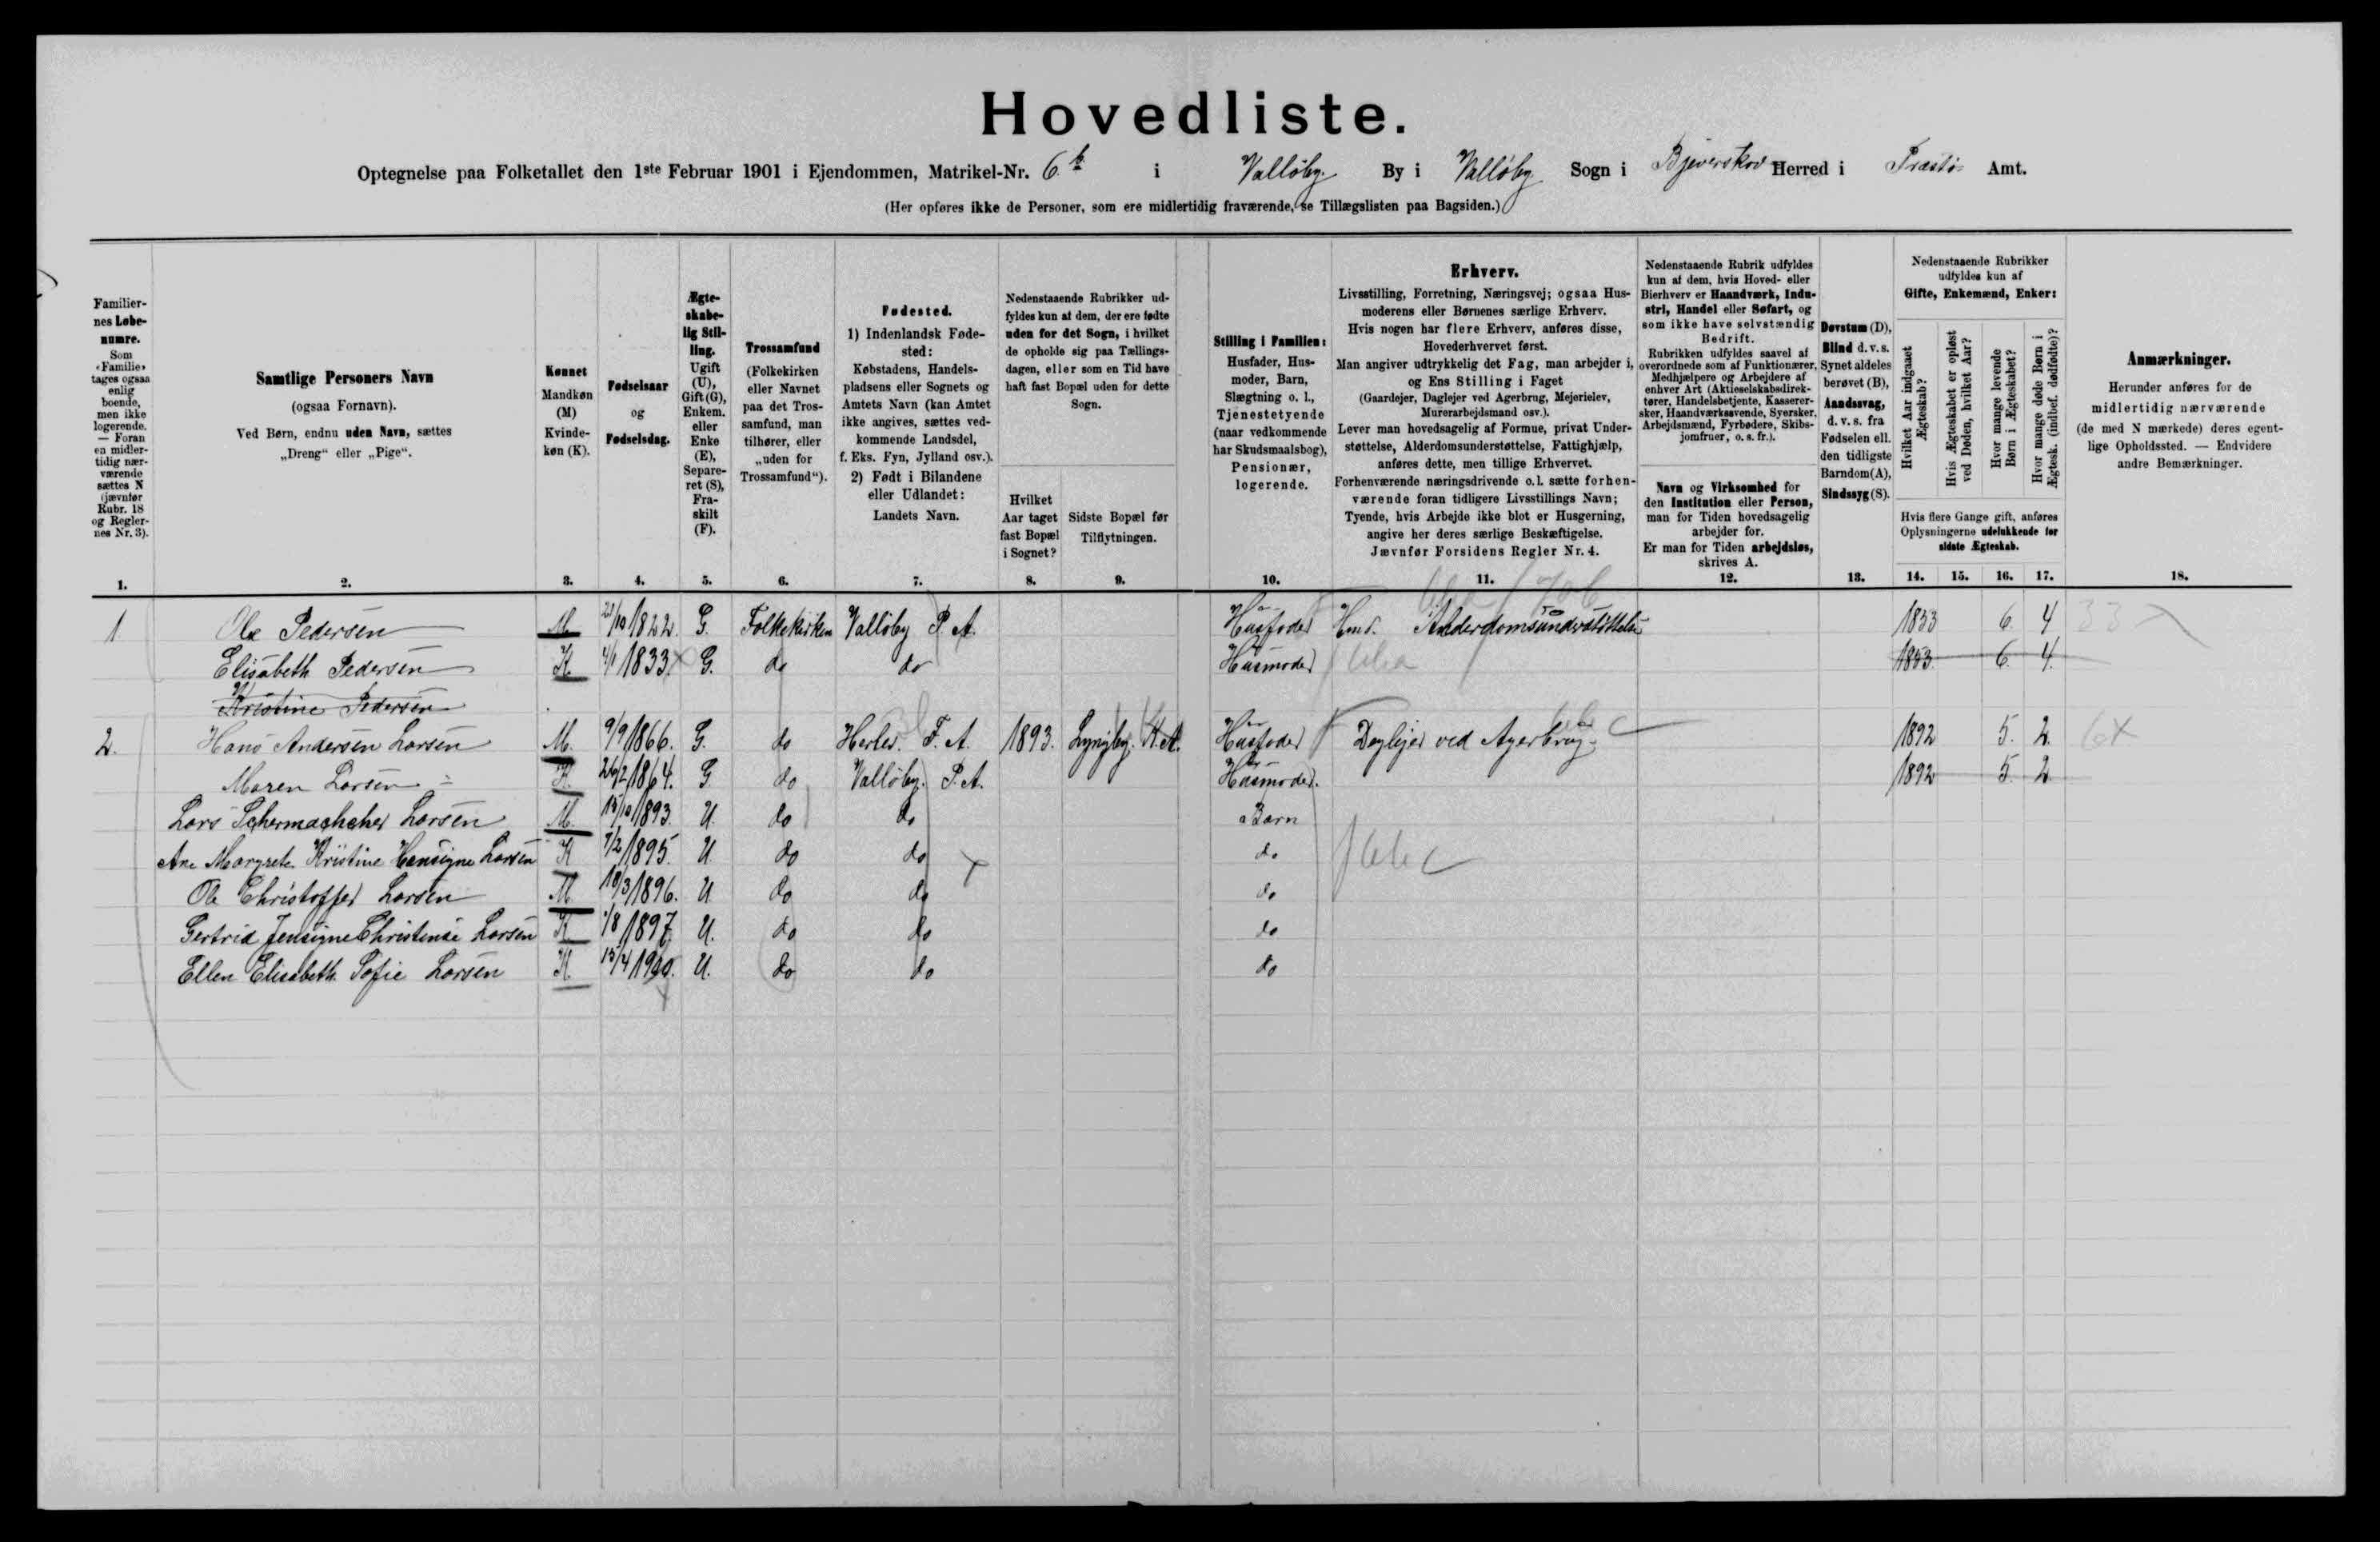 Hovedliste.
Optegnelse paa Folketallet den 1ste Februar 1901 i Ejendommen, Matrikel-Nr. 6 b i Valløby By i Valløby Sogn i Bjeverskov Herred i Præstø Amt.
(Her opføres ikke de Personer, som ere midlertidig fraværende, se Tillægslisten paa Bagsiden.)
Familier-
nes Løbe-
numre.
Som
«Familie»
tages ogsaa
enlig
boende,
men ikke
logerende.
— Foran
en midler-
tidig nær-
værende
sættes N
(jævnfør
Rubr. 18
og Regler-
nes Nr. 3).
1.
Samtlige Personers Navn
(ogsaa Fornavn).
Ved Børn, endnu uden Navn, sættes
„Dreng“ eller „Pige“.
2.
Kønnet
Mandkøn
(M)
Kvinde-
køn (K).
3.
Fødselsaar
og
Fødselsdag.
4.
Ægte-
skabe-
lig Stil-
ling.
Ugift
(U),
Gift (G),
Enkem.
eller
Enke
(E),
Separe-
ret (S),
Fra-
skilt
(F).
5.
Trossamfund
(Folkekirken
eller Navnet
paa det Tros-
samfund, man
tilhører, eller
„uden for
Trossamfund“).
6.
Fødested.
1) IndenlandskFøde-
sted:
Købstadens, Handels-
pladsens eller Sognets og
Amtets Navn (kan Amtet
ikke angives, sættes ved-
kommende Landsdel,
f. Eks. Fyn, Jylland osv.).
2) Født i Bilandene
eller Udlandet:
Landets Navn.
7.
Nedenstaaende Rubrikker ud-
fyldes kun af dem, der ere fødte
uden for det Sogn, i hvilket
de opholde sig paa Tællings-
dagen, eller som en Tid have
haft fast Bopæl uden for dette
Sogn.
Hvilket
Aar taget
fast Bopæl
i Sognet?
8.
Sidste Bopæl før
Tilflytningen.
9.
Stilling i Familien:
Husfader, Hus-
moder, Barn,
Slægtning o. l.,
Tjenestetyende
(naar vedkommende
har Skudsmaalsbog),
Pensionær,
logerende.
10.
Erhverv.
Livsstilling, Forretning, Næringsvej; ogsaa Hus-
moderens eller Børnenes særlige Erhverv.
Hvis nogen har flere Erhverv, anføres disse,
Hovederhvervet først.
Man angiver udtrykkelig det Fag, man arbejder i,
og Ens Stilling i Faget
(Gaardejer, Daglejer ved Agerbrug, Mejerielev,
Murerarbejdsmand osv.).
Lever man hovedsagelig af Formue, privat Under-
støttelse, Alderdomsunderstøttelse, Fattighjælp,
anføres dette, men tillige Erhvervet.
Forhenværende næringsdrivende o. l. sætte forhen-
værende foran tidligere Livsstillings Navn;
Tyende, hvis Arbejde ikke blot er Husgerning,
angive her deres særlige Beskæftigelse.
Jævnfør Forsidens Regler Nr. 4.
11.
Nedenstaaende Rubrik udfyldes
kun af dem, hvis Hoved- eller
Bierhverv er Haandværk, Indu-
stri, Handel eller Søfart, og
som ikke have selvstændig
Bedrift.
Rubrikken udfyldes saavel af
overordnede som af Funktionærer,
Medhjælpere og Arbejdere af
enhver Art (Aktieselskabsdirek-
tører, Handelsbetjente, Kasserer-
sker, Haandværkssvende, Syersker,
Arbejdsmænd, Fyrbødere, Skibs-
jomfruer, o. s. fr.).
Navn og Virksomhed for
den Institution eller Person,
man for Tiden hovedsagelig
arbejder for.
Er man for Tiden arbejdsløs,
skrives A.
12.
Døvstum (D),
Blind d. v. s.
Synet aldeles
berøvet (B),
Aandssvag,
d. v. s. fra
Fødselen ell.
den tidligste
Barndom (A),
Sindssyg (S).
13.
Nedenstaaende Rubrikker
udfyldes kun af
Gifte, Enkemænd, Enker:
Hvilket Aar indgaaet
Ægteskab?
Hvis Ægteskabet er opløst
ved Døden, hvilket Aar?
Hvor mange levende
Børn i Ægteskabet?
Hvor mange døde Børn i
Ægtesk. (indbef. dødfødte)?
Hvis flere Gange gift, anføres
Oplysningerne udelukkende for
sidste Ægteskab.
14. 15. 16. 17.
Anmærkninger.
Herunder anføres for de
midlertidig nærværende
(de med N mærkede) deres egent-
lige Opholdssted. — Endvidere
andre Bemærkninger.
18.
1 Ole Pedersen M. 21/10 1822. G. Folkekirken Valløby P. A. Husfader Hmd. Alderdomsunderstøttelse 1853 6. 4 33
Elisabeth Pedersen K. 4/1 1833. G. do do Husmoder 1853. 6. 4.
Kristine Pedersen
2. Hans Andersen Larsen M. 9/9 1866. G. do Herlev. F. A. 1893. Lyngby. K. A. Husfader Daglejer ved Agerbrug. 1892 5. 2. 6x
Maren Larsen K. 26/2 1864. G do Valløby. P. A. Husmoder. 1892 5. 2
Lars Schermachcher Larsen M. 15/10 1893. U. do do Barn
Ane Margrete Kristine Hansigne Larsen K 7/2 1895. U. do do do
Ole Christoffer Larsen M. 18/3 1896. U do do do
Gertrid Jensigne Christense Larsen K 1/8 1897. U. do do do
Ellen Elisabeth Sofie Larsen K. 15/4 1900. U. do do do